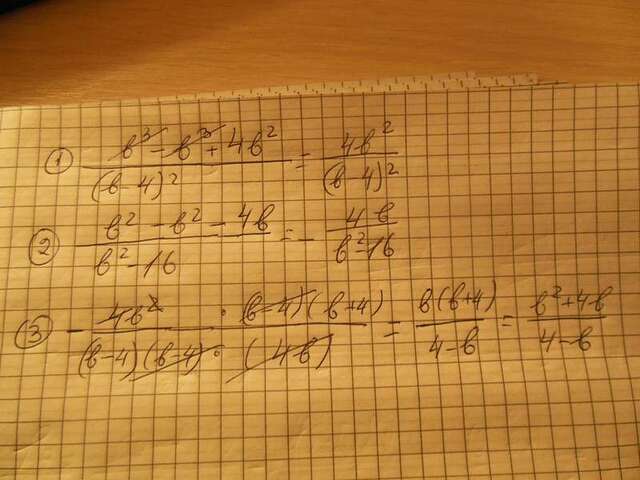 ① (b³ - b³ + 4b²)/(b-4)² = 4b²/(b-4)²
② (b² - b² - 4b)/(b² - 16) = - 4b/(b² - 16)
③ - (4b² · (b-4)(b+4))/((b-4)(b-4) · (4b)) = b(b+4)/(4-b) = (b² + 4b)/(4-b)